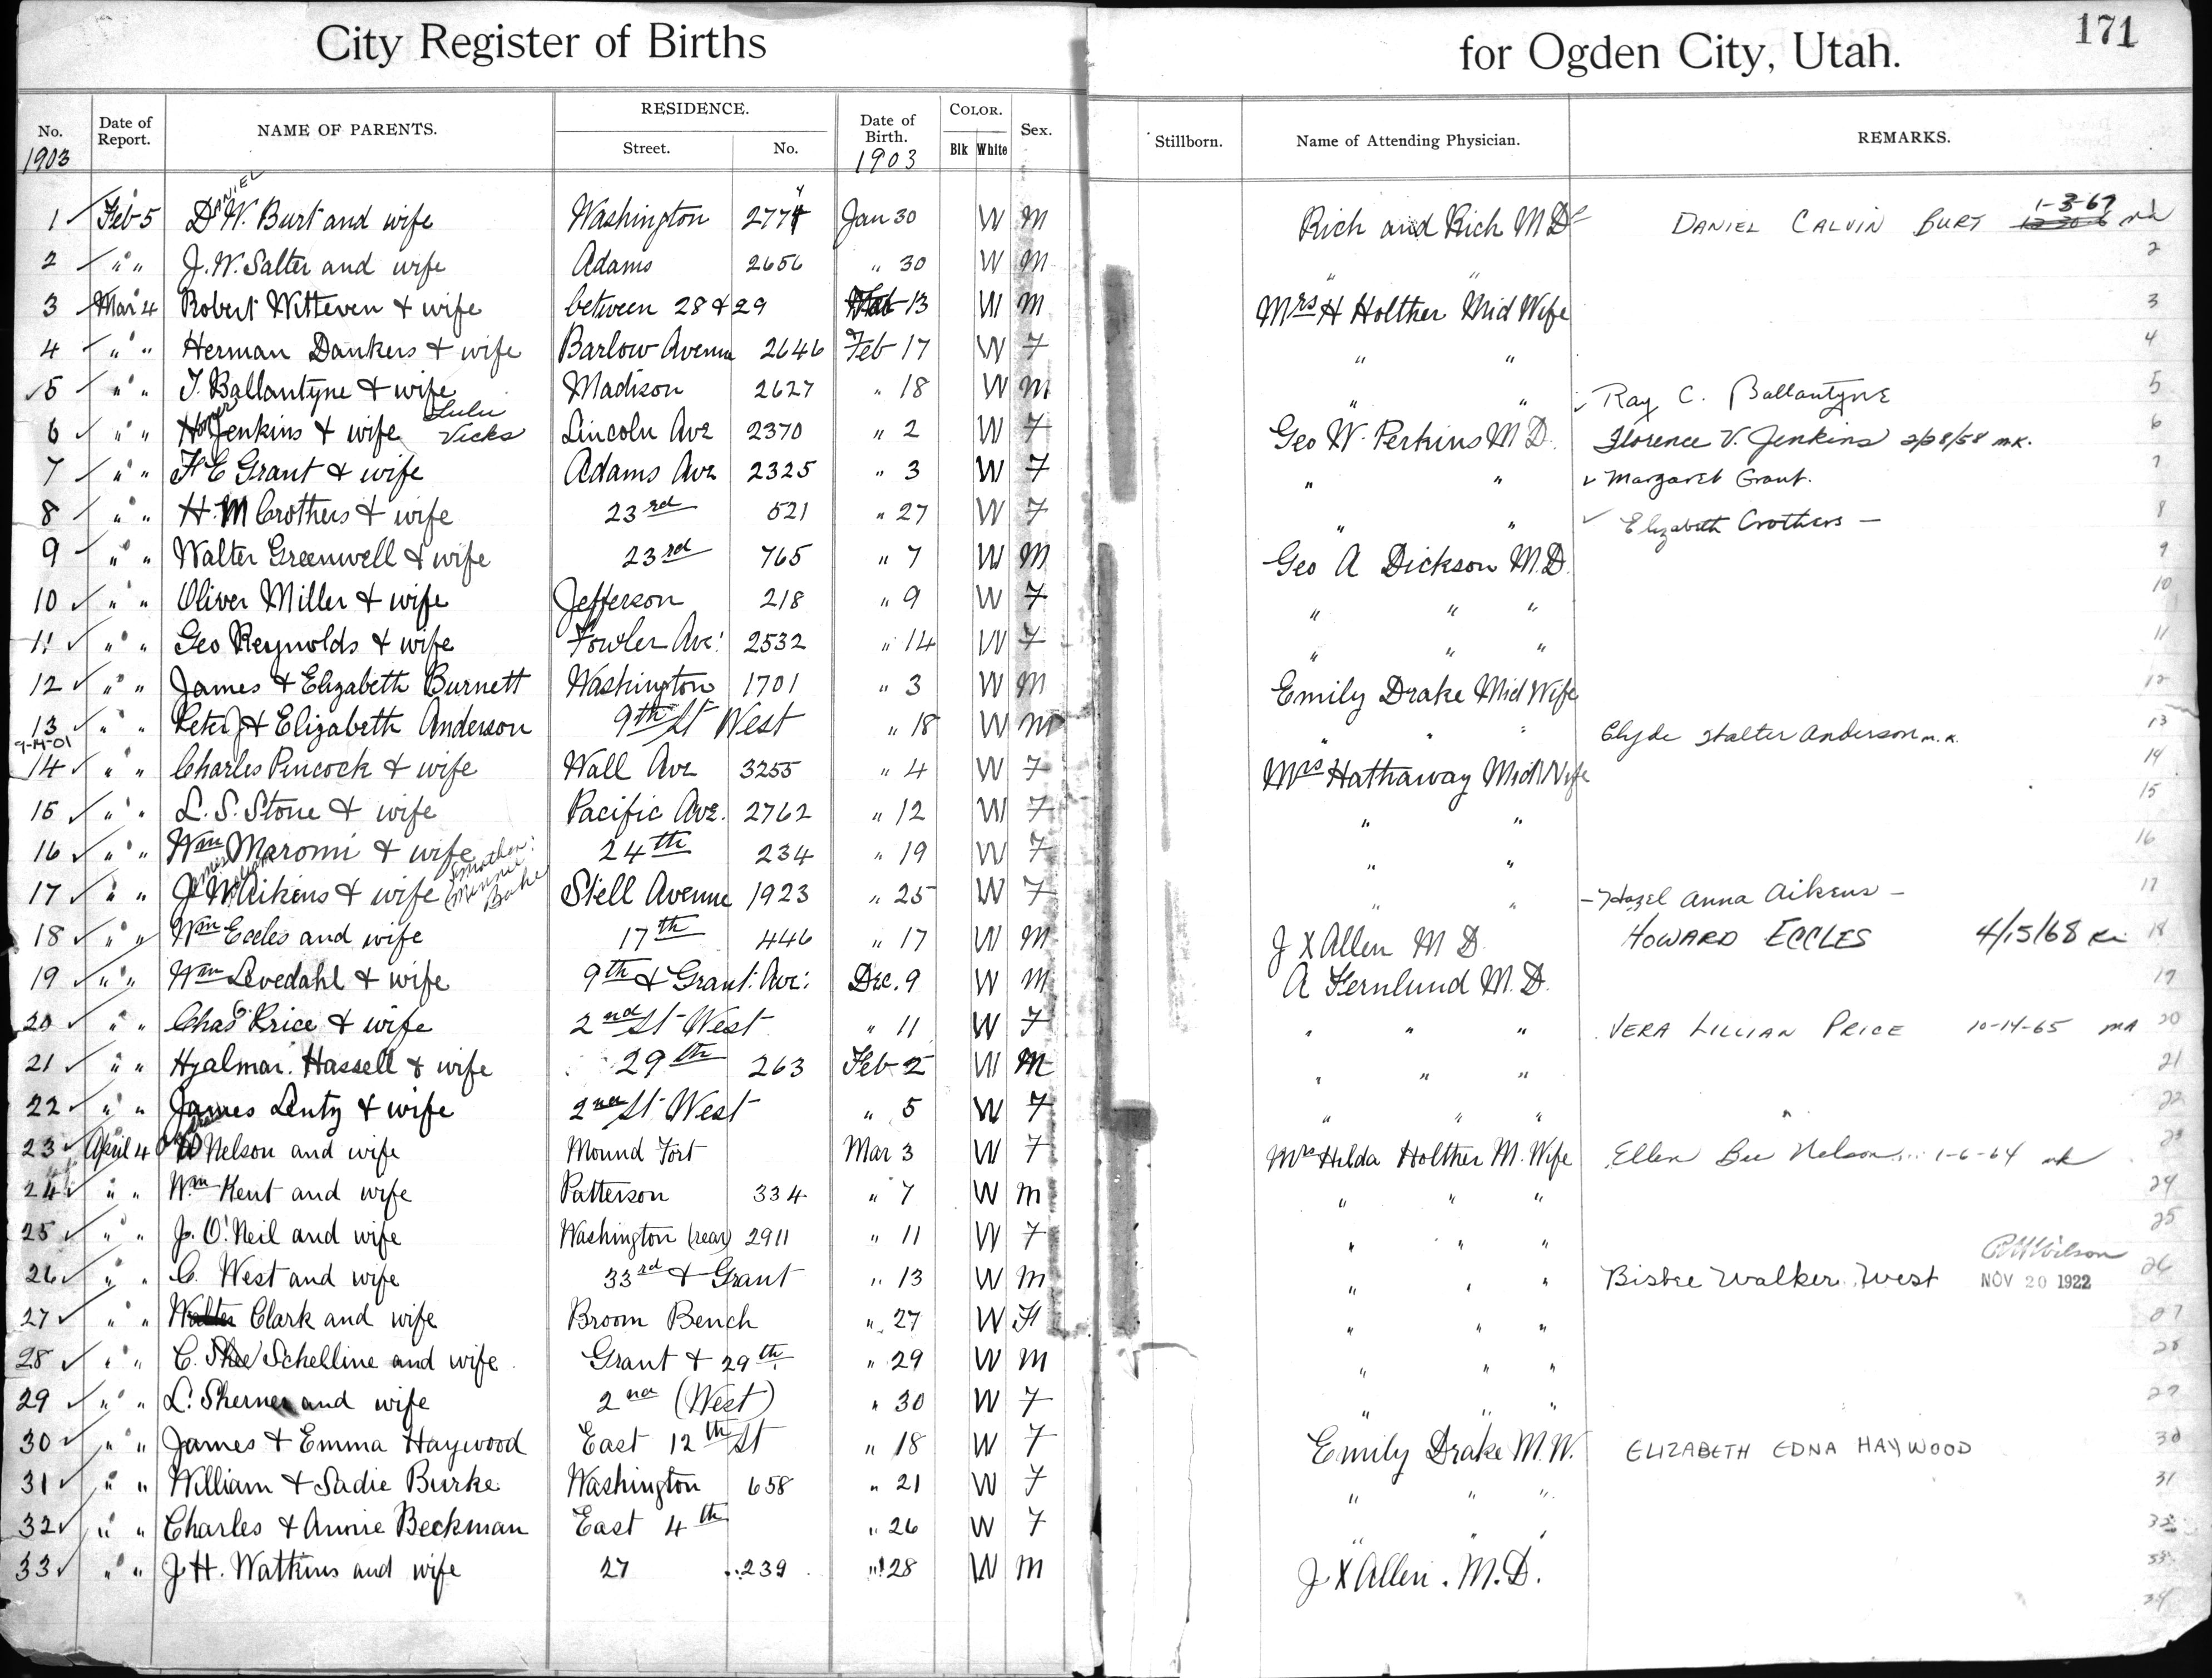 City Register of Births for Ogden City, Utah. 171
No. Date of Report. NAME OF PARENTS. RESIDENCE. Street. No. Date of Birth. COLOR. Blk White Sex. Stillborn. Name of Attending Physician. REMARKS.
1903 1903
1 ✓ Feb 5 DANIEL W. Burt and wife Washington 2774 Jan 30 W M Rich and Rich M Ds DANIEL CALVIN BURT 1-3-67 1
2 ✓ " " J. W. Salter and wife Adams 2656 " 30 W M " " 2
3 ✓ Mar 4 Robert Witteven & wife between 28 & 29 Feb 13 W M Mrs H Holther Mid Wife 3
4 ✓ " " Herman Dankers & wife Barlow Avenue 2646 Feb 17 W F " " 4
5 ✓ " " T. Ballantyne & wife Madison 2627 " 18 W M " " ✓ Ray C. Ballantyne 5
6 ✓ " " Homer Jenkins & wife Lulu Vicks Lincoln Ave 2370 " 2 W F Geo W. Perkins M D. Florence V. Jenkins 2/28/58 m.k. 6
7 ✓ " " F E Grant & wife Adams Ave 2325 " 3 W F " " ✓ Margaret Grant. 7
8 ✓ " " H. M Crothers & wife 23rd 521 " 27 W F " " ✓ Elizabeth Crothers — 8
9 ✓ " " Walter Greenwell & wife 23rd 765 " 7 W M Geo A Dickson M.D. 9
10 ✓ " " Oliver Miller & wife Jefferson 218 " 9 W F " " " 10
11 ✓ " " Geo Reynolds & wife Fowler Ave: 2532 " 14 W F " " " 11
12 ✓ " " James & Elizabeth Burnett Washington 1701 " 3 W M Emily Drake Mid Wife 12
13 " " Peter J & Elizabeth Anderson 9th St West " 18 W M " " " Clyde Halter Anderson m.k. 13
9-14-01
14 ✓ " " Charles Pincock & wife Wall Ave 3255 " 4 W F Mrs Hathaway Mid Wife 14
15 ✓ " " L. S. Stone & wife Pacific Ave. 2762 " 12 W F " " 15
16 ✓ " " Wm Maromi & wife 24th 234 " 19 W F " " 16
17 ✓ " " James William Aikens & wife (mother: Minnie Stell Avenue 1923 " 25 W F " " - Hazel Anna Aikens - 17
18 ✓ " " Wm Eccles and wife 17th 446 " 17 W M J X Allen M D. HOWARD ECCLES 4/15/68 18
19 ✓ " " Wm Levedahl & wife 9th & Grant: Ave: Dec. 9 W M A Fernlund M.D. 19
20 ✓ " " Chas Price & wife 2nd St West " 11 W F " " " VERA LILLIAN PRICE 10-14-65 20
21 ✓ " " Hjalmar Hassell & wife 29th 263 Feb 2 W M " " " 21
22 ✓ " " James Lentz & wife 2nd St West " 5 W F " " " 22
23 ✓ April 4 Nelson and wife Mound Fort Mar 3 W F Mrs Hilda Holther M. Wife Ellen Bee Nelson 1-6-64 mk 23
24 ✓ " " Wm Kent and wife Patterson 334 " 7 W M " " " 24
25 ✓ " " J. O'Neil and wife Washington (rear) 2911 " 11 W F " " " 25
26 ✓ " " C. West and wife 33rd & Grant " 13 W M " " " Bisbee Walker West NOV 20 1922 26
27 ✓ " " Clark and wife Broom Bench " 27 W F " " " 27
28 ✓ " " C. Schelline and wife Grant & 29th " 29 W M " " " 28
29 ✓ " " L. Sherner and wife 2nd (West) " 30 W F " " " 29
30 ✓ " " James & Emma Haywood East 12th St " 18 W F Emily Drake M. W. ELIZABETH EDNA HAYWOOD 30
31 ✓ " " William & Sadie Burke Washington 658 " 21 W F " " " 31
32 ✓ " " Charles & Annie Beckman East 4th " 26 W F " " " 32
33 ✓ " " J H. Watkins and wife 27 239 " 28 W M J X Allen. M. D. 33
34